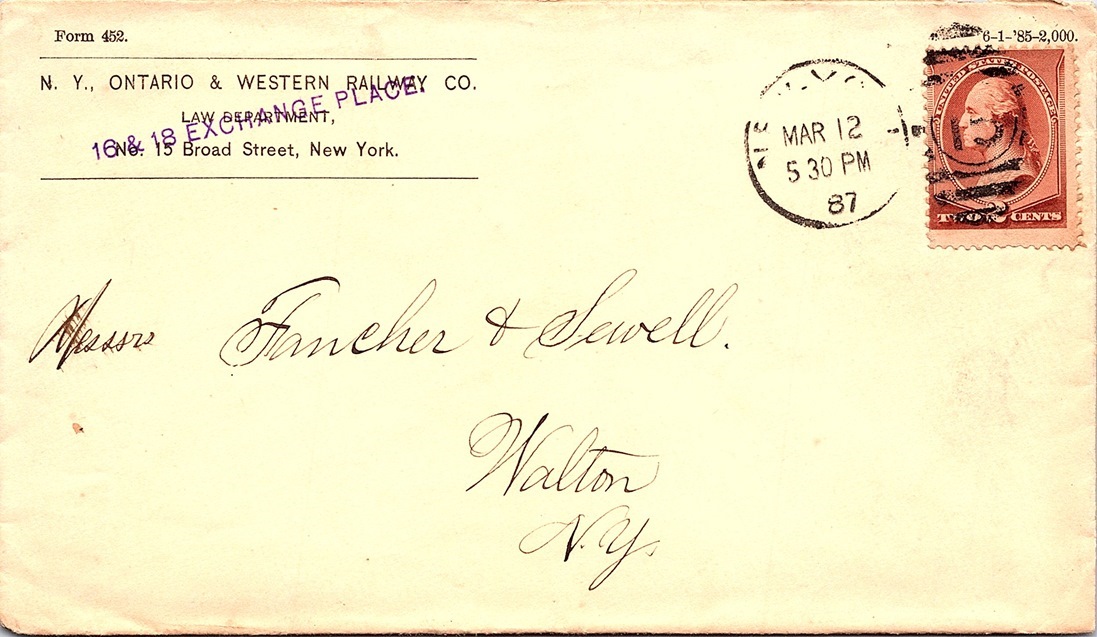 Form 452.
6-1-'85-2,000.
N. Y., ONTARIO & WESTERN RAILWAY CO.
LAW DEPARTMENT,
16 & 18 EXCHANGE PLACE.
No. 15 Broad Street, New York.
MAR 12
5 30 PM
87
UNITED STATES POSTAGE
TWO 2 CENTS
Messrs Fancher & Sewell.
Walton
N.Y.